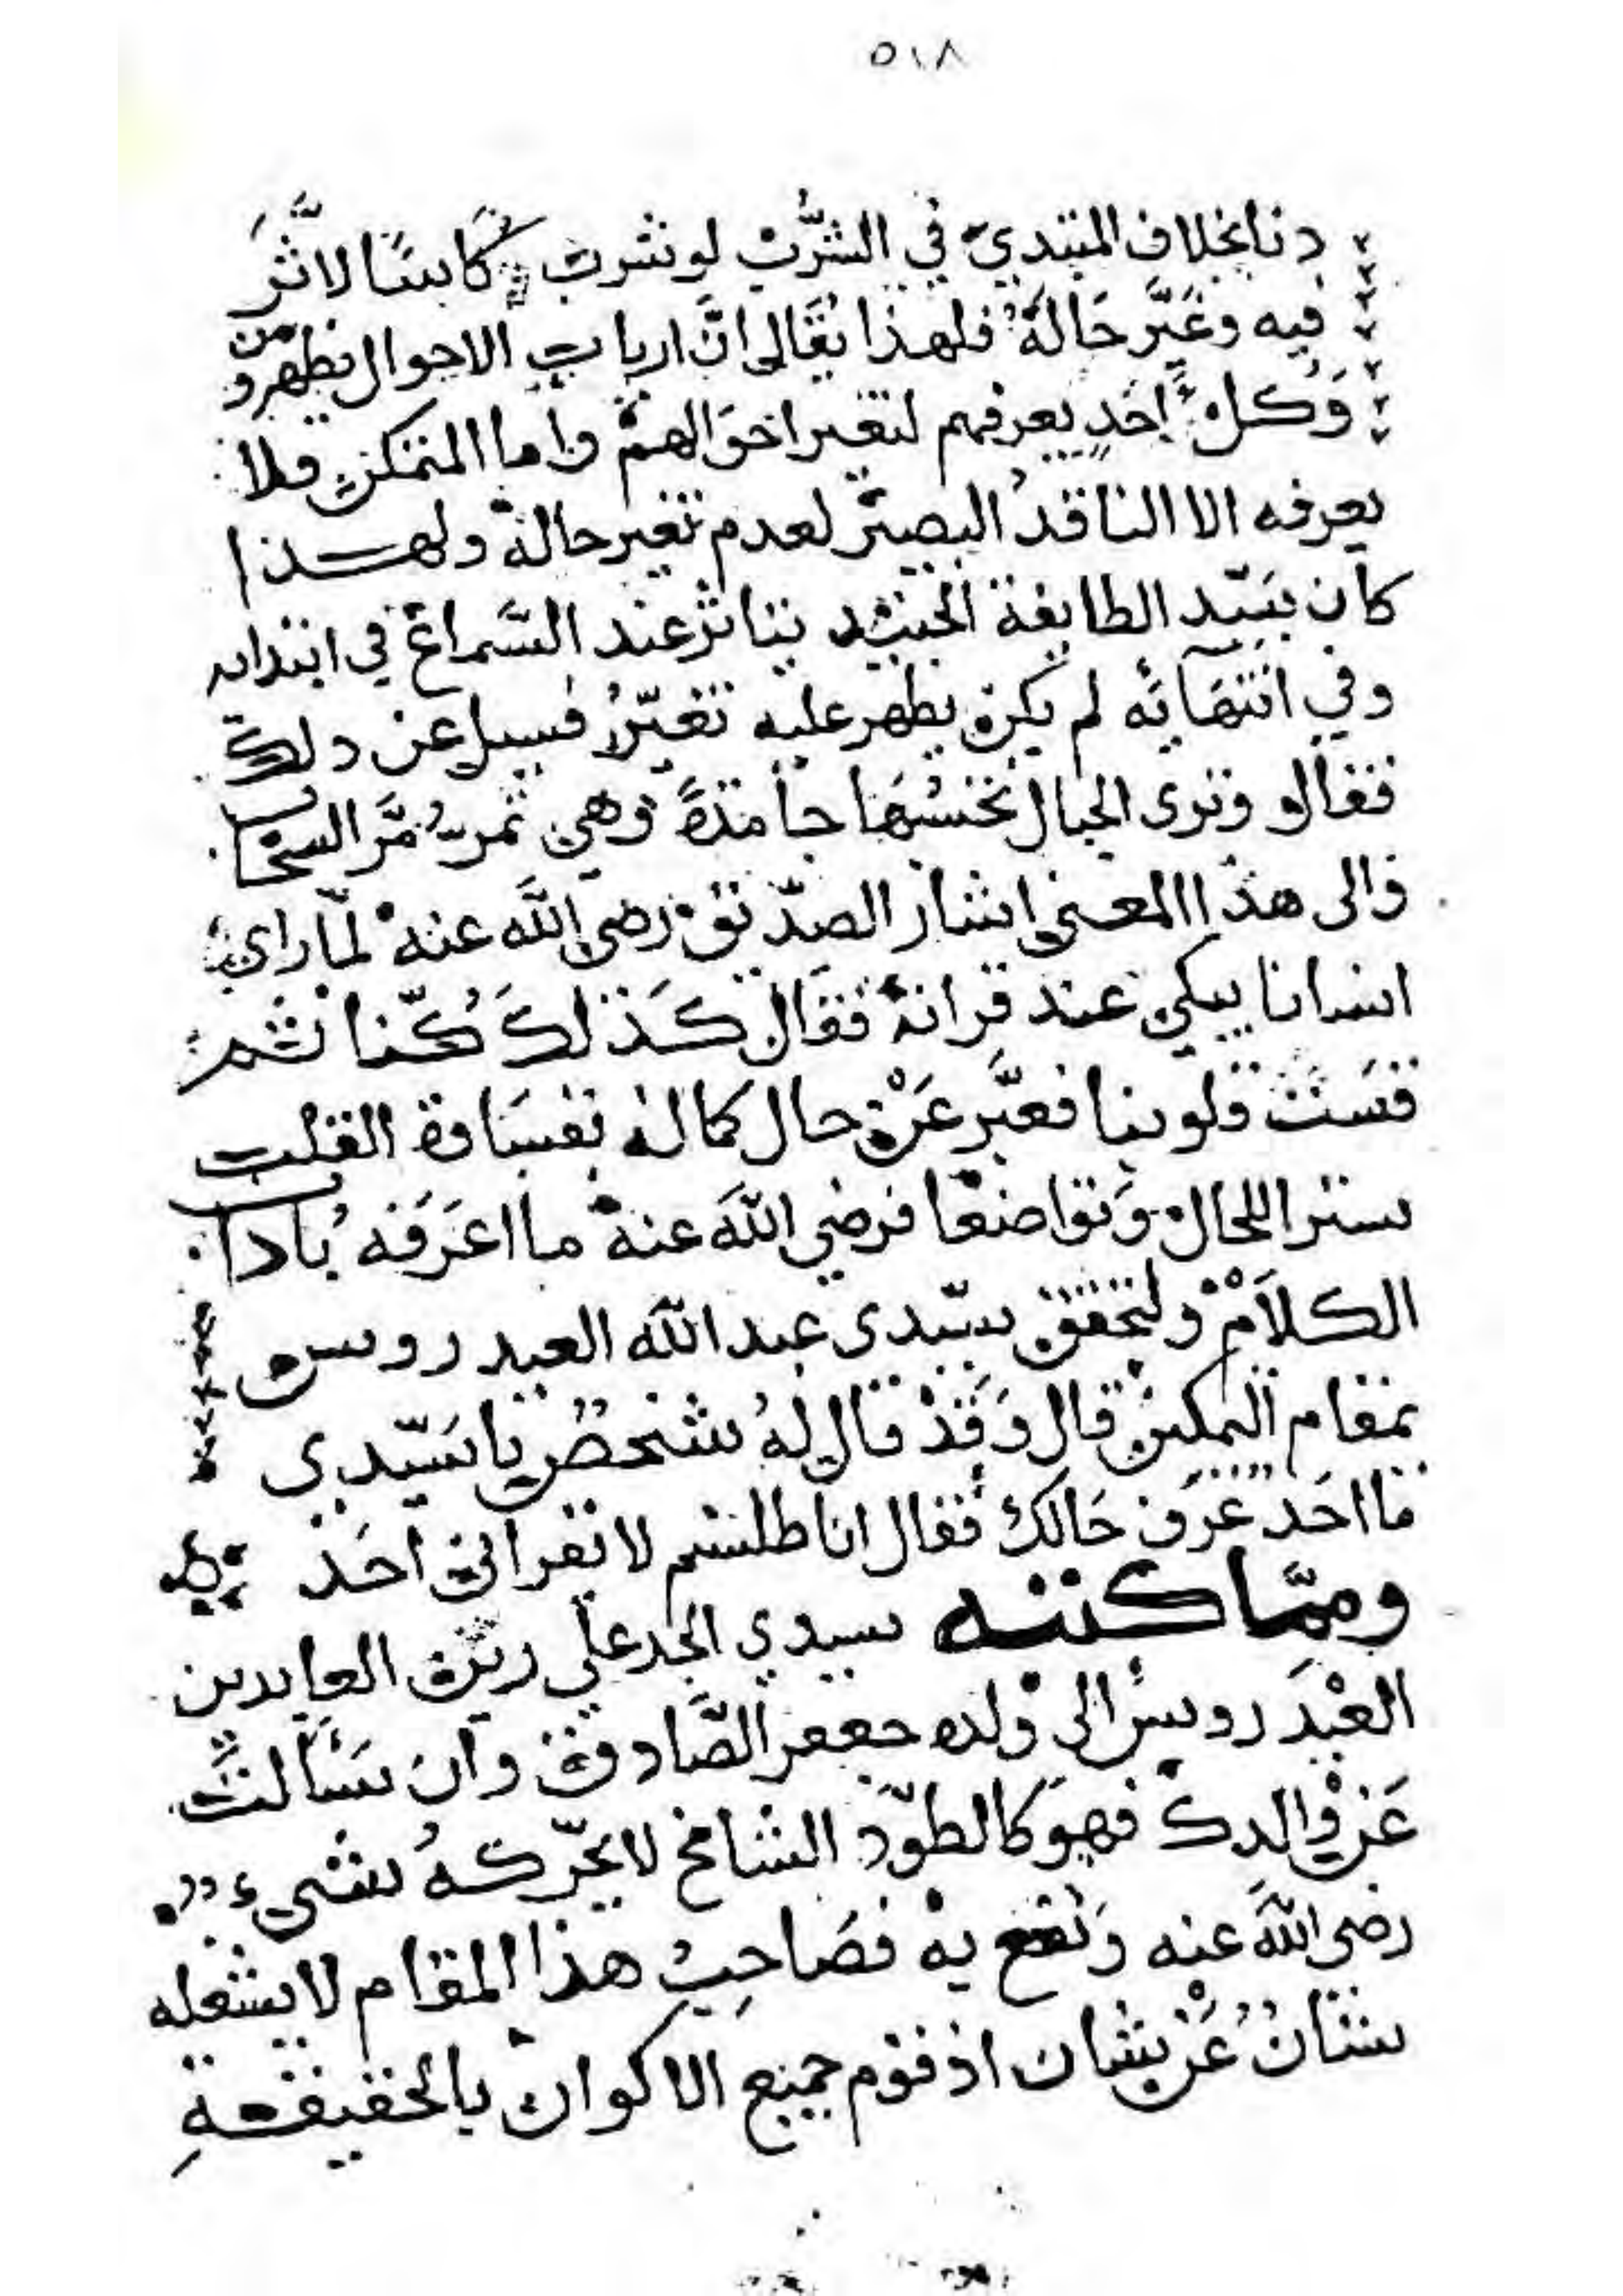 ٥١٨
دنا بخلاف المبتدي في الشرب لو شرب كاسًا لاثّر
فيه وغيَّر حاله فلهذا يقال انَّ ارباب الاحوال يظهرون
وكل احدٍ يعرفهم لتغير احوالهم واما المتمكن فلا
يعرفه الا الناقد البصير لعدم تغير حاله ولهذا
كان سيّد الطايفة الجنيد يتاثر عند السَّماع في ابتدايه
وفي انتهائه لم يكن يظهر عليه تغيّر فسيل عن ذلك
فقال وترى الجبال تحسبُها جامدةً وهي تمرّ مَرَّ السحاب
والى هذا المعنى اشار الصدّيق رضي الله عنه لمّا راى
انسانا يبكي عند قرانه فقال كَذلك كُنّا ثم
قسَت قلوبنا فعبَّر عَن حال كماله بقسَاوة القلب
سترا للحال وتواضعًا فرضي الله عنه ما اعرَفه باداب
الكلام ولتحقق سيّدى عبد الله العيدروس
بمقام التمكين قال وَقَدْ قال لهُ شخصٌ يا سَيّدي
ما احَد عَرَف حَالك فقال انا طلسم لا يقراني احَد
وممّا كتبه سيدي الجد علي زين العابدين
العيْدَروس الى ولده جعفر الصَّادق وان سَألت
عَن والدك فهو كالطوّد الشامخ لا يحرّكهُ شيء
رضي الله عنه ونفع به فصَاحِبُ هذا المقام لا يشغله
شانٌ عَنْ شان اذ قوم جميع الاكوان بالحقيقةِ